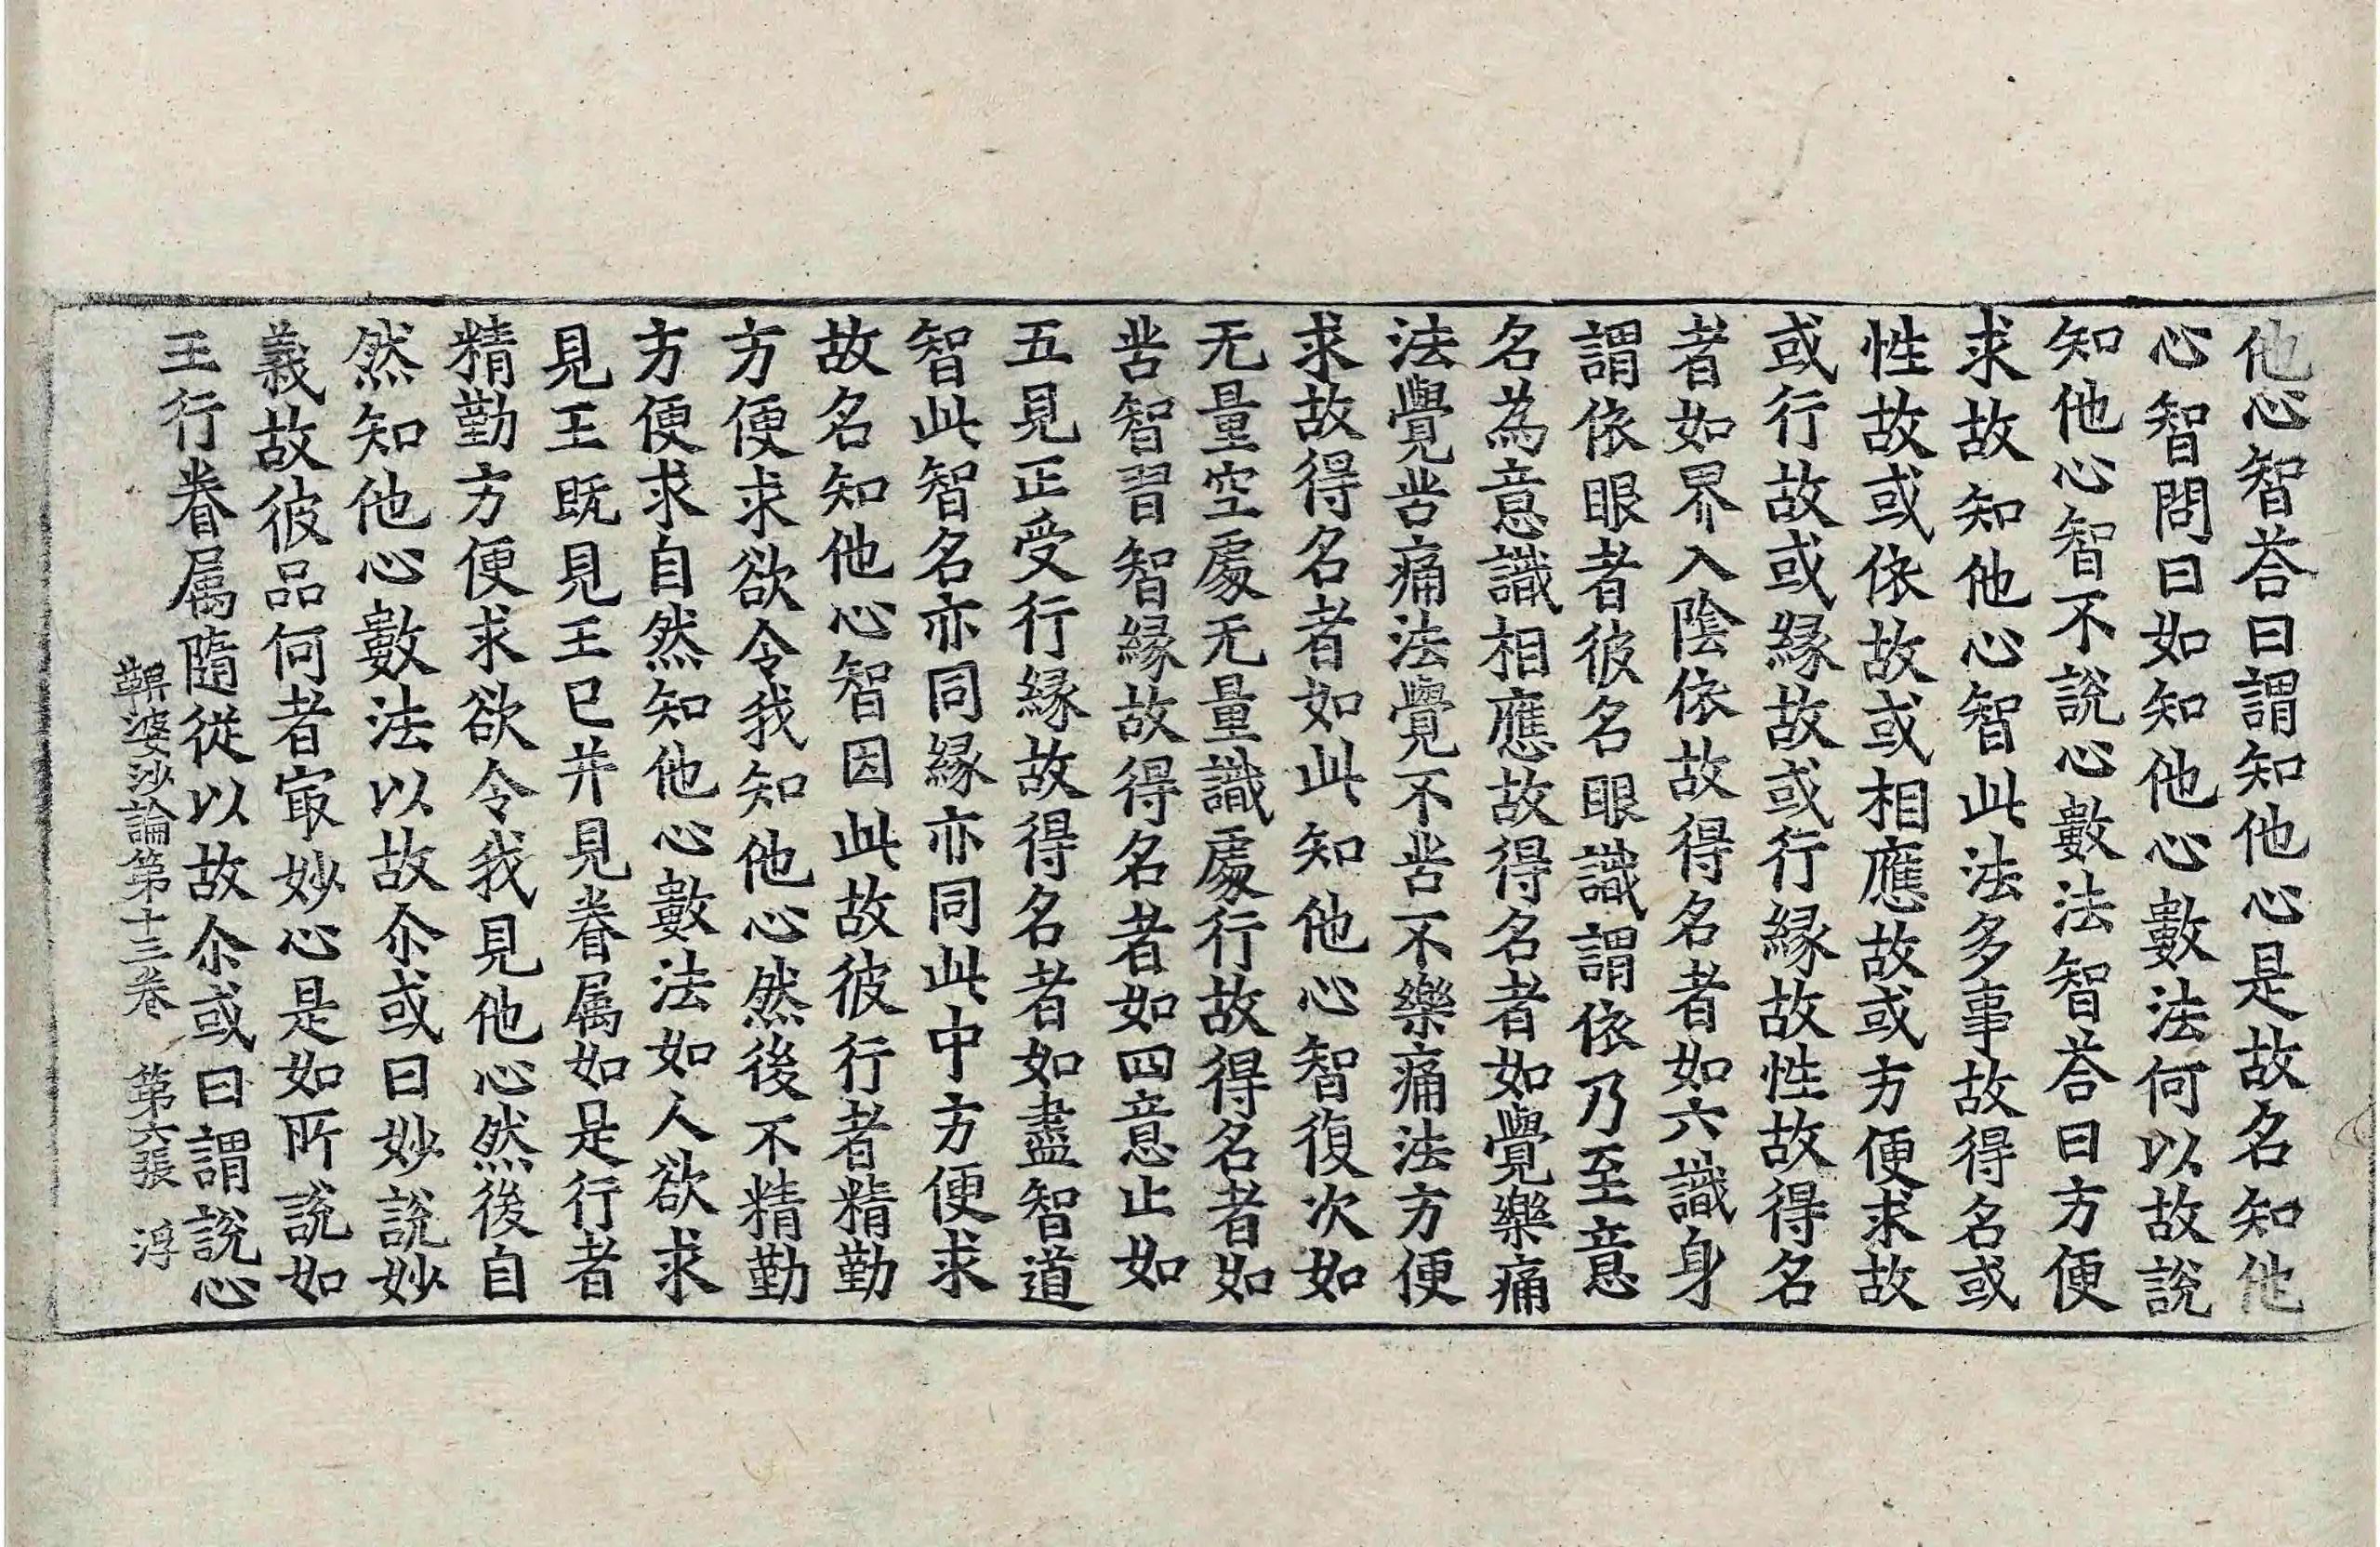 他心智荅曰謂知他心是故名知他
心智問曰如知他心數法何以故說
知他心智不說心數法智荅曰方便
求故知他心智此法多事故得名或
性故或依故或相應故或方便求故
或行故或緣故或行緣故性故得名
者如界入陰依故得名者如六識身
謂依眼者彼名眼識謂依乃至意
名為意識相應故得名者如覺樂痛
法覺苦痛法覺不苦不樂痛法方便
求故得名者如此知他心智復次如
无量空處无量識處行故得名者如
苦智習智緣故得名者如四意止如
五見正受行緣故得名者如盡智道
智此智名亦同緣亦同此中方便求
故名知他心智因此故彼行者精勤
方便求欲令我知他心然後不精勤
方便求自然知他心數法如人欲求
見王既見王已并見眷属如是行者
精勤方便求欲令我見他心然後自
然知他心數法以故尒或曰妙說妙
義故彼品何者㝡妙心是如所說如
王行眷属隨從以故尒或曰謂說心
鞞婆沙論第十三卷　第六張　浮